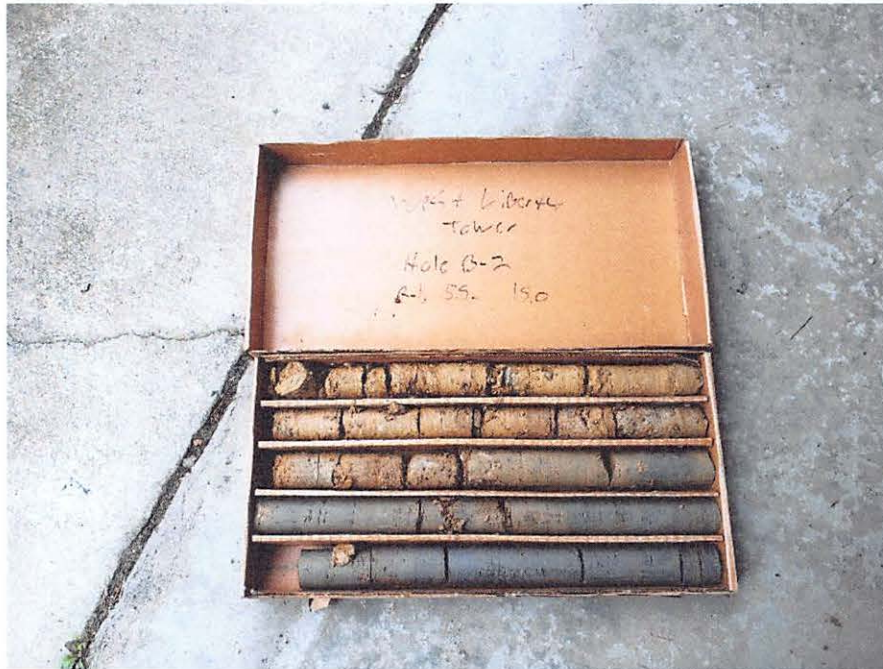 West Liberty
Tower
Hole B-2
5.5- 15.0